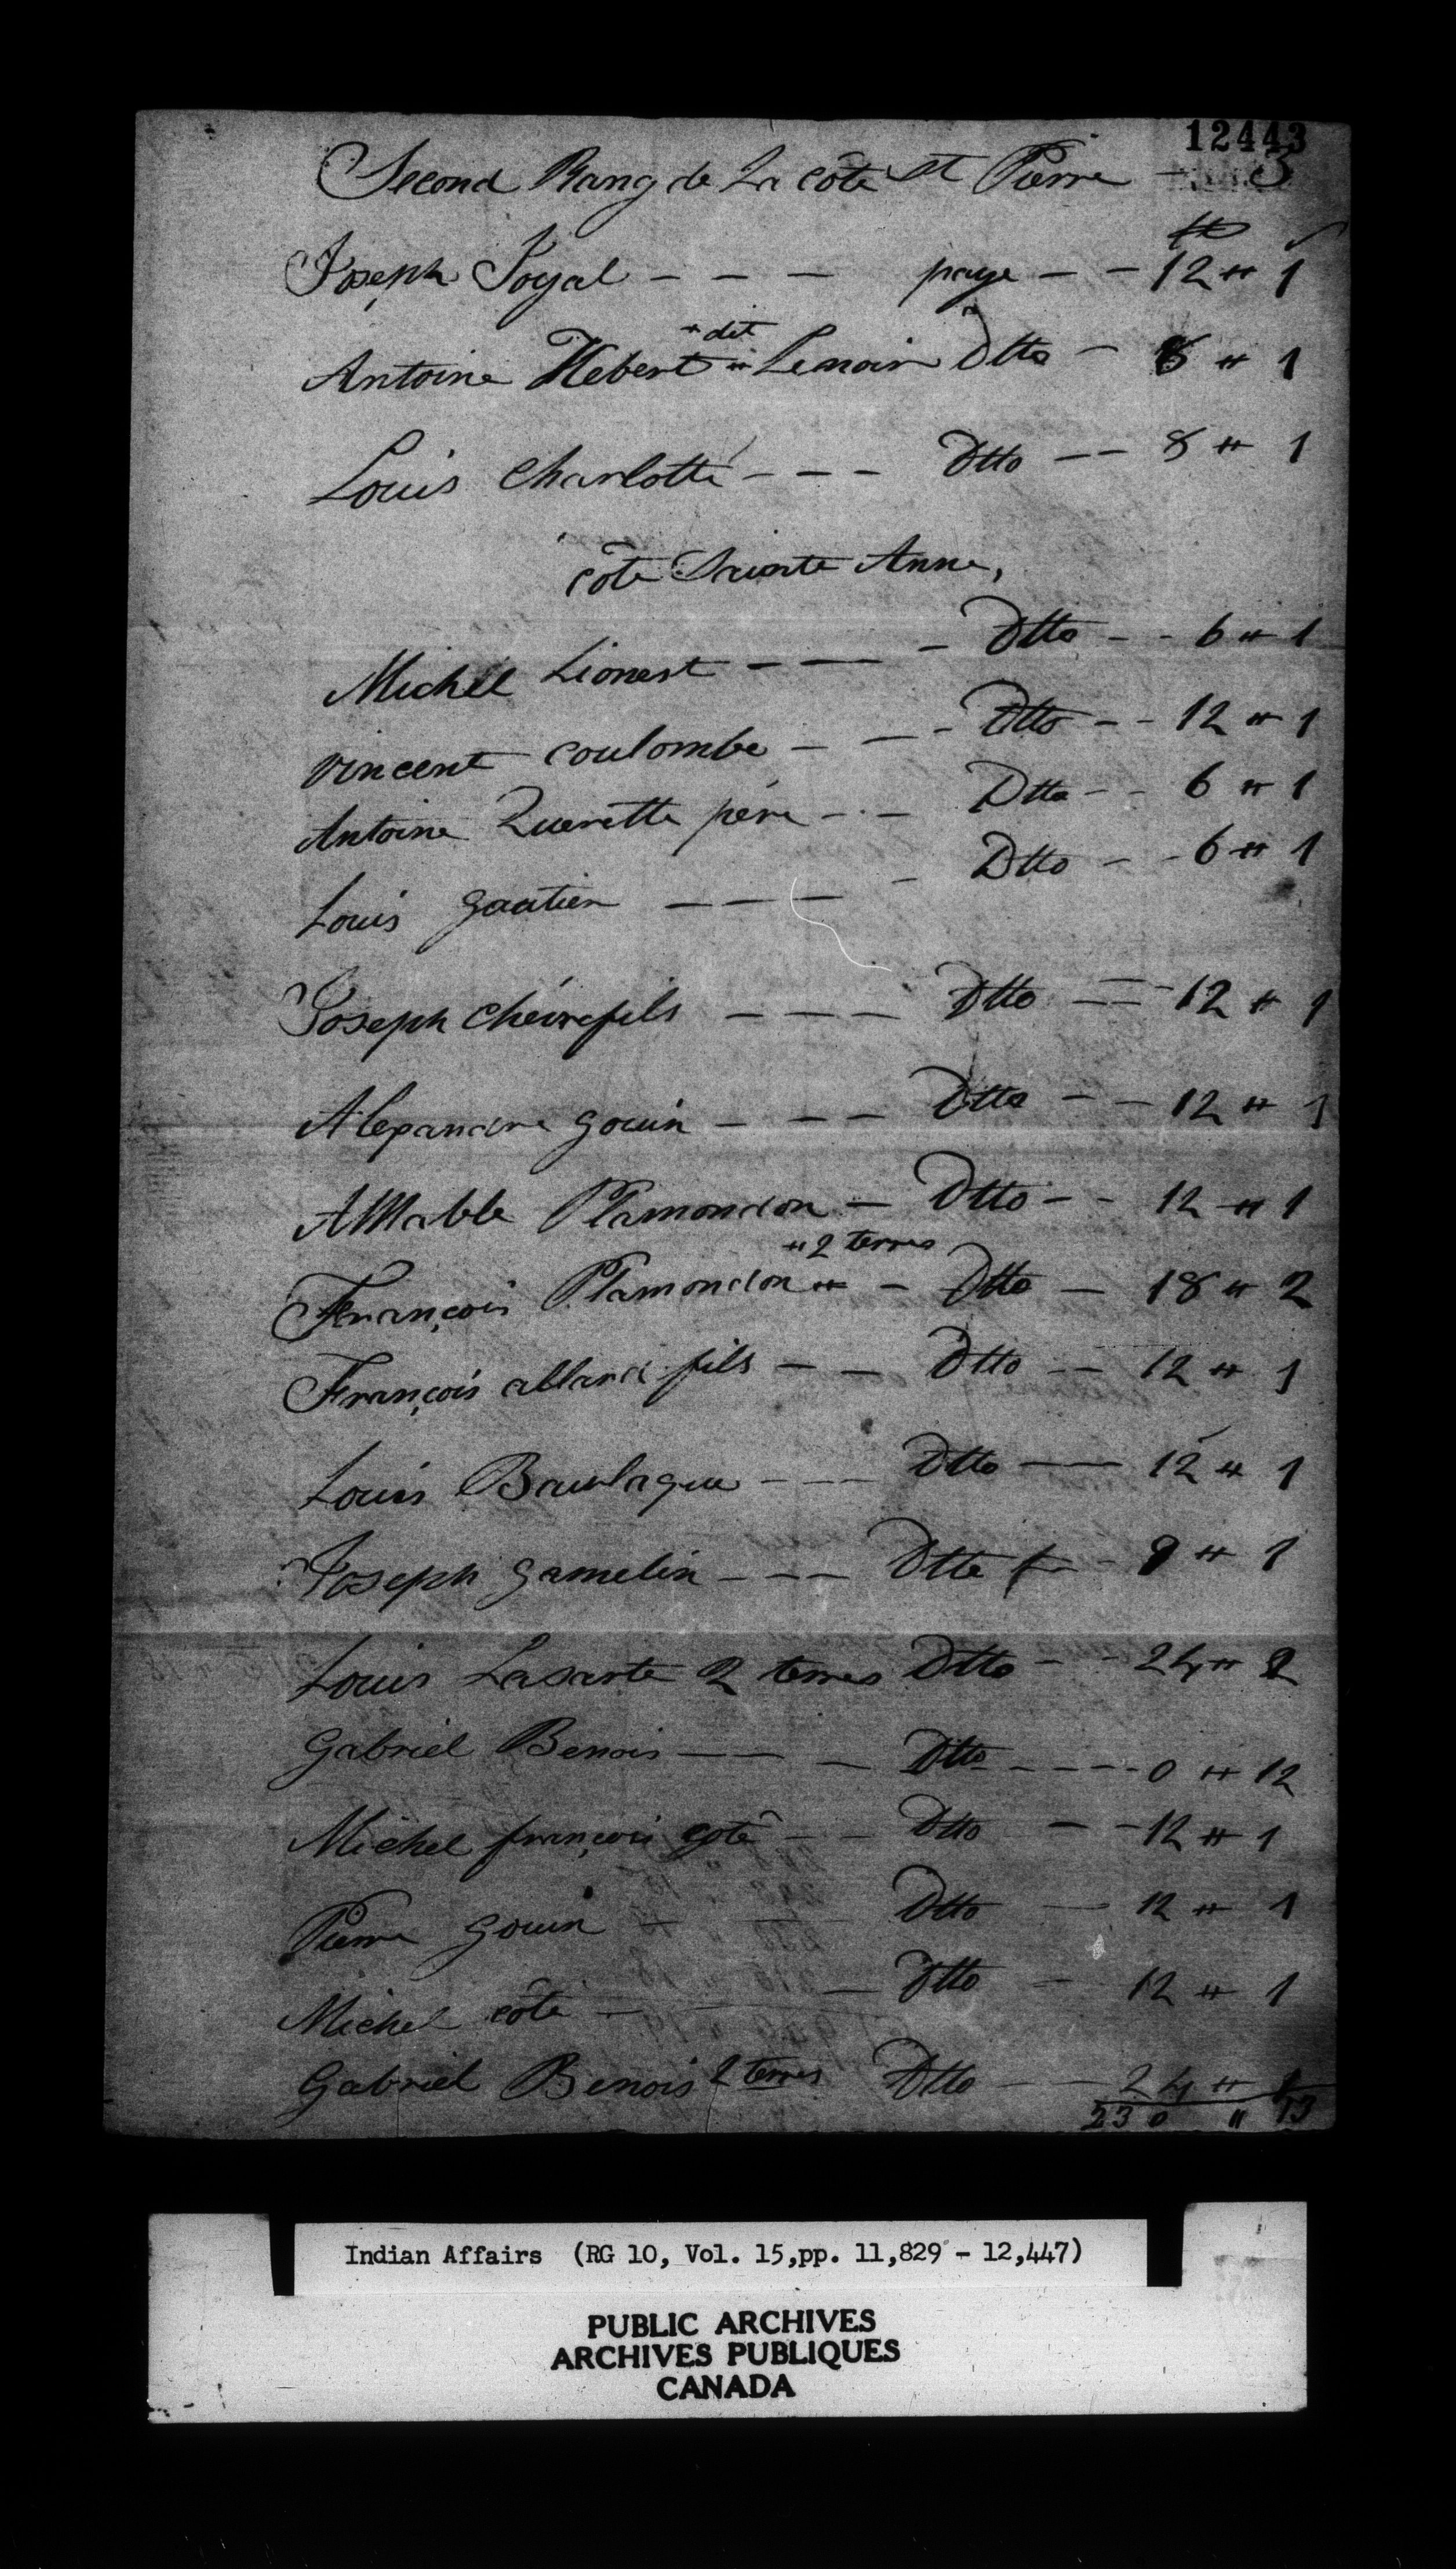 12443
Second Rang de La côte St Pierre - 3
₶ s
Joseph Joyal - - - paye - - 12 ₶ 1
Antoine Hebert dit Lenoir Dtto - 8 ₶ 1
Louis Charlotte - - - Dtto - - 8 ₶ 1
Côte Sainte Anne,
Michel Lionest - - - - Dtto - - 6 ₶ 1
Vincent Coulombe - - - Dtto - - 12 ₶ 1
Antoine Querette père - - - Dtto - - 6 ₶ 1
Louis gautier - - - - Dtto - - 6 ₶ 1
Joseph Chévrefils - - - Dtto - - 12 ₶ 1
Alexandre gouin - - - Dtto - - 12 ₶ 1
AMable Plamondon - Dtto - - 12 ₶ 1
François Plamondon 2 terres - Dtto - 18 ₶ 2
François allard fils - - Dtto - - 12 ₶ 1
Louis Baulaque - - - Dtto - - 12 ₶ 1
Joseph gamelin - - - Dtto - 9 ₶ 1
Louis Lasarte 2 terres Dtto - - 24 ₶ 2
Gabriel Benois - - - Dtto - - - - 0 ₶ 12
Michel françois Côté - - Dtto - - 12 ₶ 1
Pierre gouin - - Dtto - 12 ₶ 1
Michel côté - - - Dtto - 12 ₶ 1
Gabriel Benois 2 terres Dtto - - 24 ₶
230 " 13
Indian Affairs (RG 10, Vol. 15,pp. 11,829 - 12,447)
PUBLIC ARCHIVES
ARCHIVES PUBLIQUES
CANADA